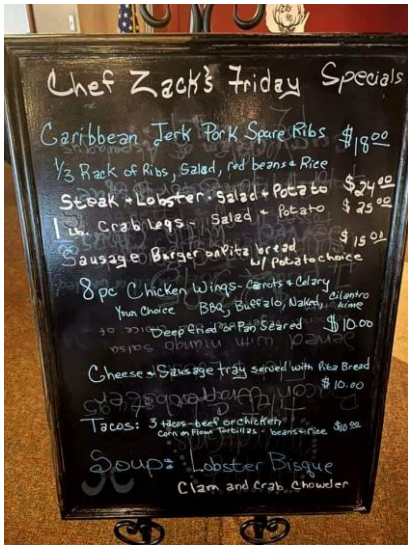 Chef Zack's Friday Specials
Caribbean Jerk Pork Spare Ribs $18.00
1/3 Rack of Ribs, Salad, red beans + Rice
Steak + Lobster - Salad + Potato $24.00
1 lb. Crab Legs - Salad + Potato $25.00
Sausage Burger on Pita bread $15.00
w/ Potato choice
8 pc Chicken Wings - Carrots & Celary
Your Choice BBQ, Buffalo, Naked, Cilantro Lime
Deep fried or Pan Seared $10.00
Cheese & Sausage tray served with Pita Bread
$10.00
Tacos: 3 tacos - beef or chicken
Corn or Flour Tortillas - beans + rice $10.00
Soup: Lobster Bisque
Clam and Crab Chowder